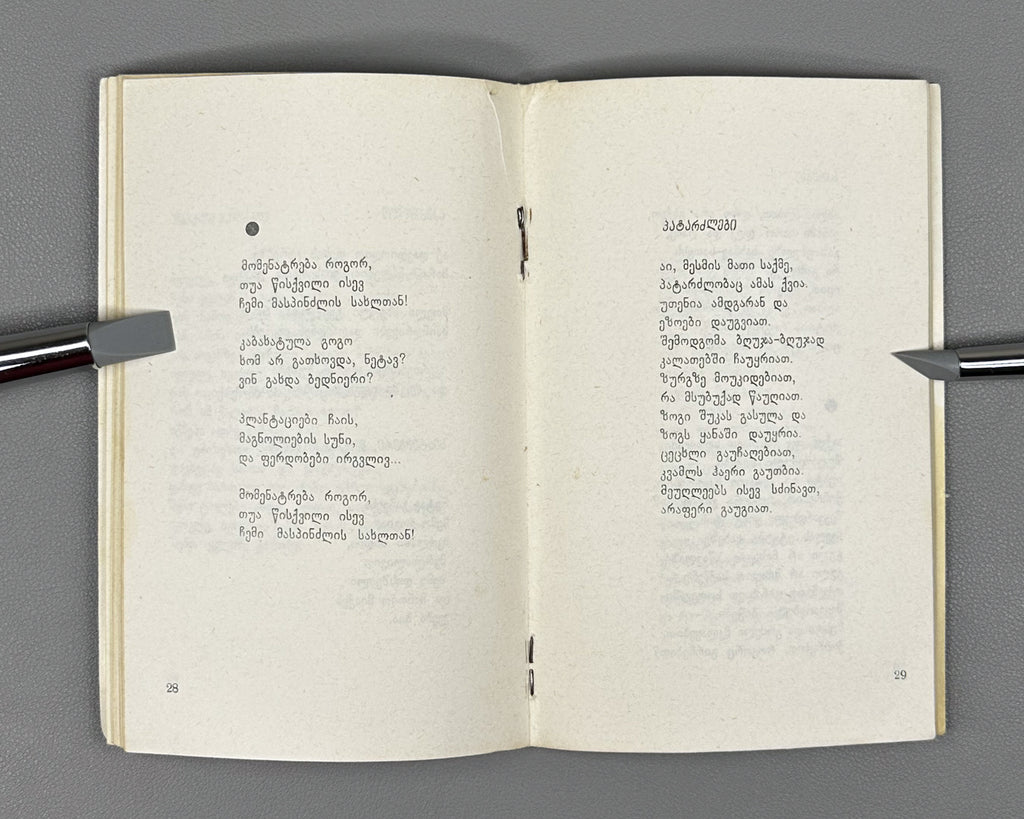 მომენატრება როგორ,
თუა წისქვილი ისევ
ჩემი მასპინძლის სახლთან!
კაბახატულა გოგო
ხომ არ გათხოვდა, ნეტავ?
ვინ გახდა ბედნიერი?
პლანტაციები ჩაის,
მაგნოლიების სუნი,
და ფერდობები ირგვლივ...
მომენატრება როგორ,
თუა წისქვილი ისევ
ჩემი მასპინძლის სახლთან!
28
პატარძლები
აი, მესმის მათი საქმე,
პატარძლობაც ამას ქვია.
უთენია ამდგარან და
ეზოები დაუგვიათ.
შემოდგომა ბღუჯა-ბღუჯად
კალათებში ჩაუყრიათ.
ზურგზე მოუკიდებიათ,
რა მსუბუქად წაუღიათ.
ზოგი შუკას გასულა და
ზოგს ყანაში დაუყრია.
ცეცხლი გაუჩაღებიათ,
კვამლს ჰაერი გაუთბია.
მეუღლეებს ისევ სძინავთ,
არაფერი გაუგიათ.
29